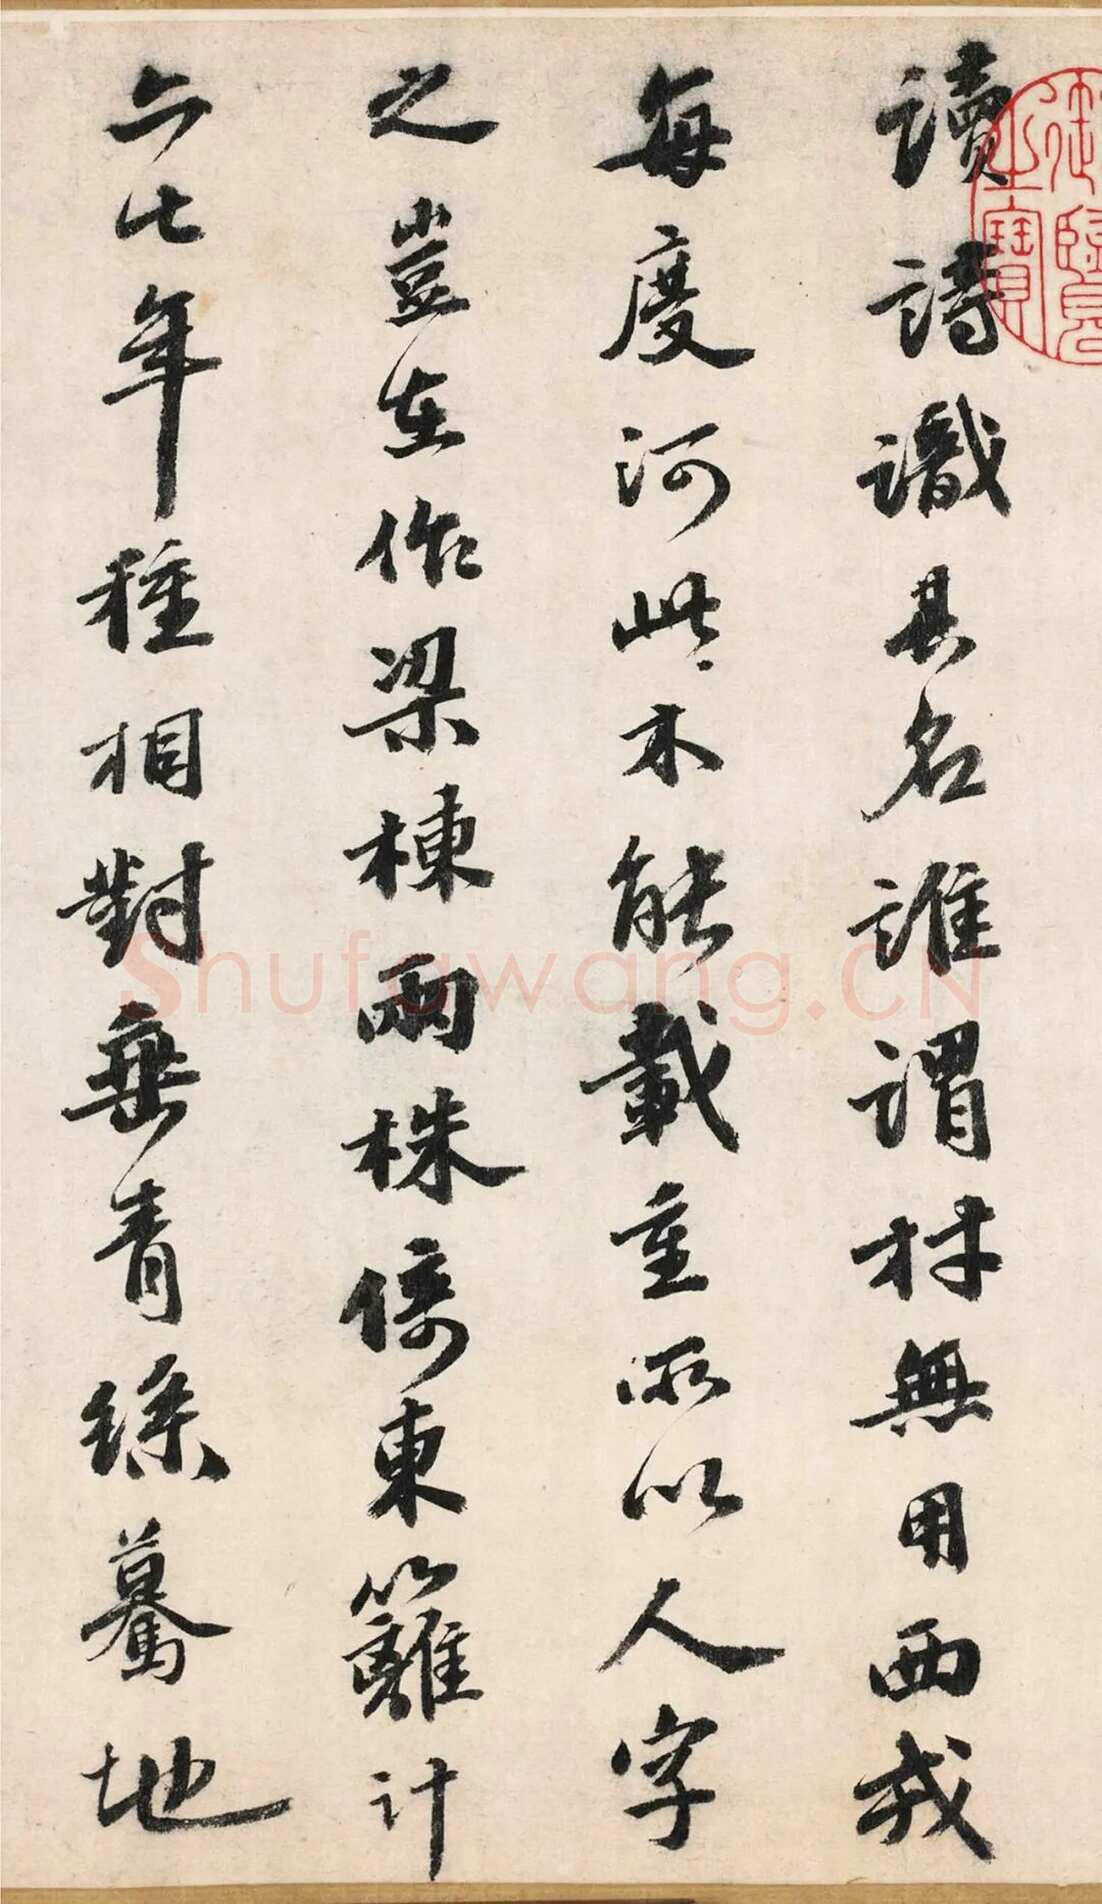 御覽之寶
讀詩識其名誰謂材無用西戎
每度河此木能載重所以人字
之豈在作梁棟兩株倚東籬計
六七年種相對垂青縧驀地
Shufawang.CN